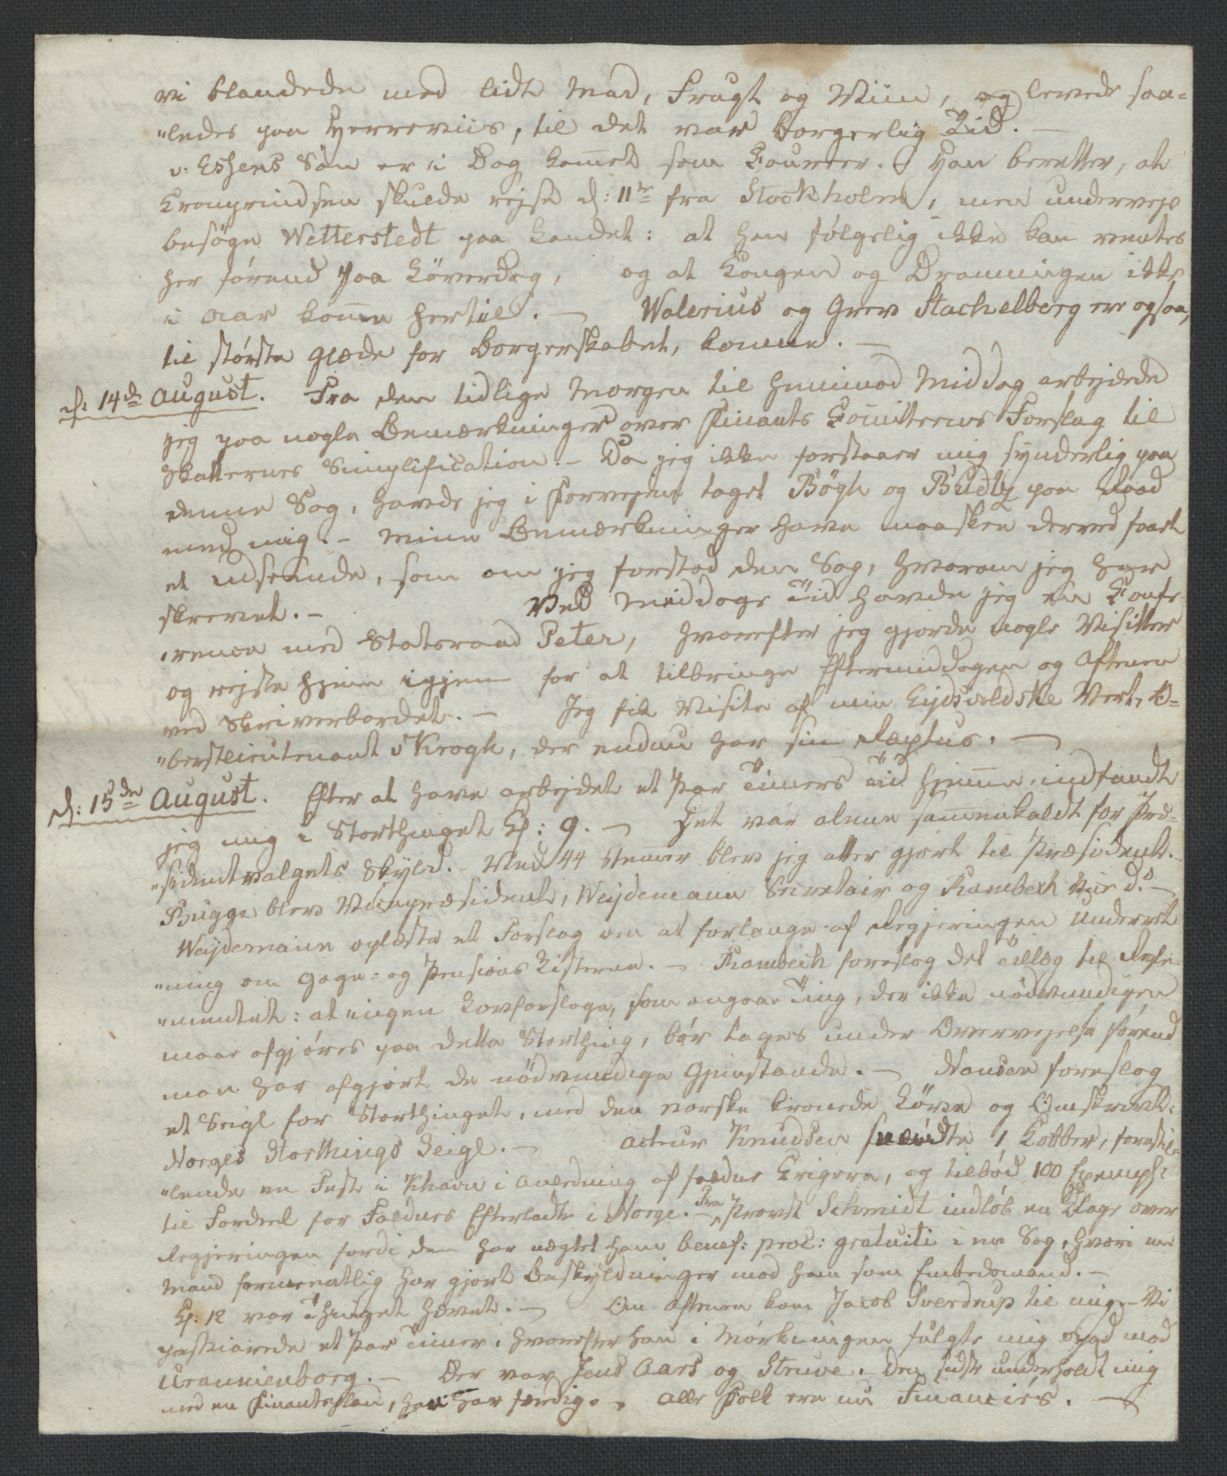 vi blandede med lidt Mad, Frugt og Viin, og levede saa=
"ledes paa Herreviis, til det var borgerlig Tid. —
v: Essens Søn er i Dag kommet som Coureer. Han beretter, at
Kronprindsen skulde rejse d: 11te fra Stockholm, men underveis
besøge Wetterstedt paa Landet: at han følgelig ikke kan ventes
her førend paa Løverdag, og at Kongen og Dronningen ikke
i Aar komme hertil. — Valerius og Grev Stachelberg ere ogsaa,
til største Glæde for Borgerskabet, komne. —
d: 14de August. Fra den tidlige Morgen til henimod Middag arbejdede
jeg paa nogle Bemærkninger over Finants Comitteens Forslag til
Skatternes Simplification. – Da jeg ikke forstaaer mig synderlig paa
denne Sag, havde jeg i Forvejen taget Bøgh og Budtz paa Raad
med mig. – Mine Bemærkninger have maaskee derved faaet
et Udseende, som om jeg forstod den Sag, hvorom jeg har
skrevet. – Ved Middags Tid havde jeg en Confe
"rence med Statsraad Peter, hvorefter jeg gjorde nogle Visitter
og rejste hjem igjen for at tilbringe Eftermiddagen og Aftenen
ved Skriverbordet. – Jeg fik Visite af min Eydsvoldske Vert, O=
"berstlieutenant v Krogh, der endnu har sin Raptus. —
d: 15de August. Efter at have arbejdet et Par Timers Tid hjemme, indfandt
jeg mig i Storthinget Kl: 9. — Det var alene sammenkaldt for Præ=
"sidentvalgets Skyld. – Med 44 Stemmer blev jeg atter gjort til Præsident. –
Bugge blev Vicepræsident, Weydemann Secretair og Rambech Vice do. –
Weydemann oplæste et Forslag om at forlange af Regjeringen Underret
"ning om Gage= og Pensions Listerne. – Rambech foreslog det Tillæg til Regle
"mentet: at ingen Lovforslage, som angaae Ting, der ikke nødvendigen
maae afgjøres paa dette Storthing, bør tages under Overvejelse førend
man har afgjort de nødvendige Gjenstande. — Nansen foreslog
et Seigl for Storthinget, med den norske kronede Løve og Omskrivt:
Norges Storthings Seigl. – Acteur Knudsen sendte 1 Kobber, forestil=
"lende en Fest i Khavn i Anledning af faldne Krigere, og tilbød 100 Exempl:
til Fordeel for Faldnes Efterladte i Norge. – Fra Provst Schmidt indløb en Klage over
Regjeringen fordi den har nægtet ham benef: proc: gratuiti i en Sag, hvori en
Mand formeentlig har gjort Beskyldninger mod ham som Embedsmand. –
Kl: 12 var Thinget hævet. – Om Aftenen kom Jacob Sverdrup til mig. – Vi
passiarede et Par Timer, hvorefter han i Mørkningen fulgte mig opad mod
Uranienborg. – Der var Jens Aars og Struve. Den sidste underholdt mig
med en Finantsplan, han har færdig. – Alle Folk ere nu Financiers. —